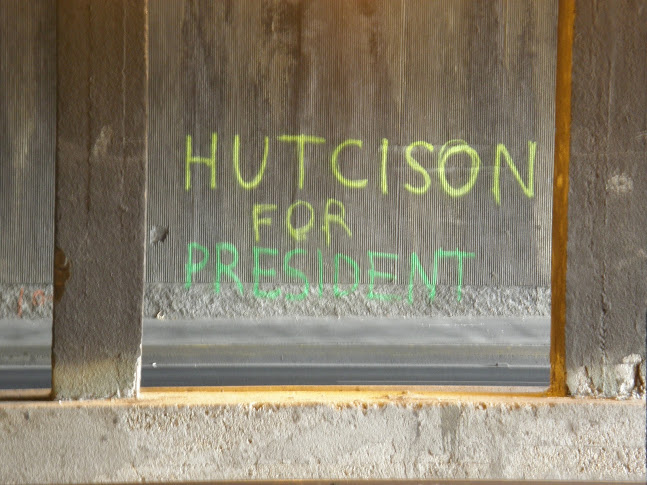 HUTCISON
FOR
PRESIDENT